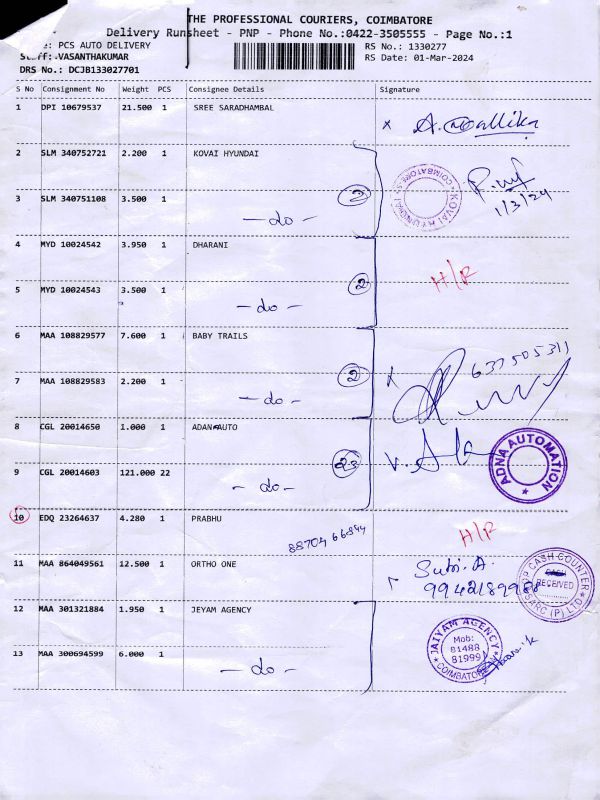 THE PROFESSIONAL COURIERS, COIMBATORE
Delivery Runsheet - PNP - Phone No.:0422-3505555 - Page No.:1
PCS AUTO DELIVERY
RS No.: 1330277
Staff: VASANTHAKUMAR
RS Date: 01-Mar-2024
DRS No.: DCJB133027701
S No Consignment No Weight PCS Consignee Details Signature
1 DPI 10679537 21.500 1 SREE SARADHAMBAL
x A. Mallika
2 SLM 340752721 2.200 1 KOVAI HYUNDAI
3 SLM 340751108 3.500 1
- do - 2
KOVAI HYUNDAI
1/3/24
4 MYD 10024542 3.950 1 DHARANI
5 MYD 10024543 3.500 1
- do - 2
H/R
6 MAA 108829577 7.600 1 BABY TRAILS
7 MAA 108829583 2.200 1
- do - 2
x
8 CGL 20014650 1.000 1 ADAN AUTO
9 CGL 20014603 121.000 22
- do - 23
ADNA AUTOMATION
10 EDQ 23264637 4.280 1 PRABHU
H/R
11 MAA 864049561 12.500 1 ORTHO ONE
CASH COUNTER
RECEIVED
SARC (P) LTD
12 MAA 301321884 1.950 1 JEYAM AGENCY
13 MAA 300694599 6.000 1
- do -
JAIYAM AGENCY
Mob:
81488
81999
COIMBATORE